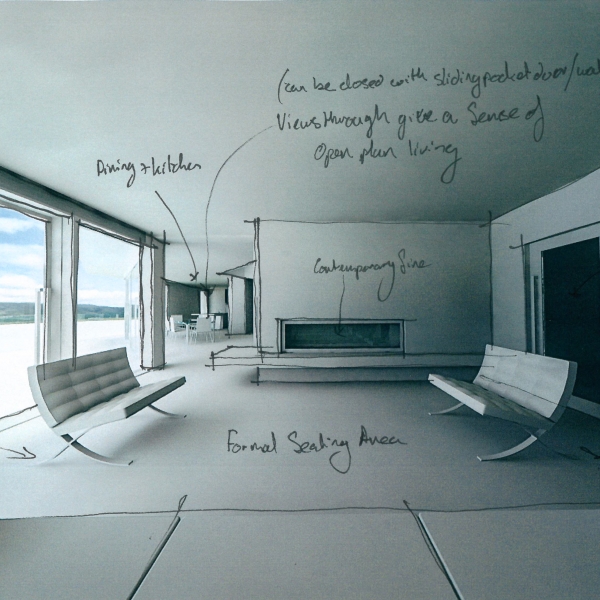 (can be closed with sliding pocket door/wall
Views through give a Sense of
Open plan living
Dining + kitchen
Contemporary fire
Formal Seating Area